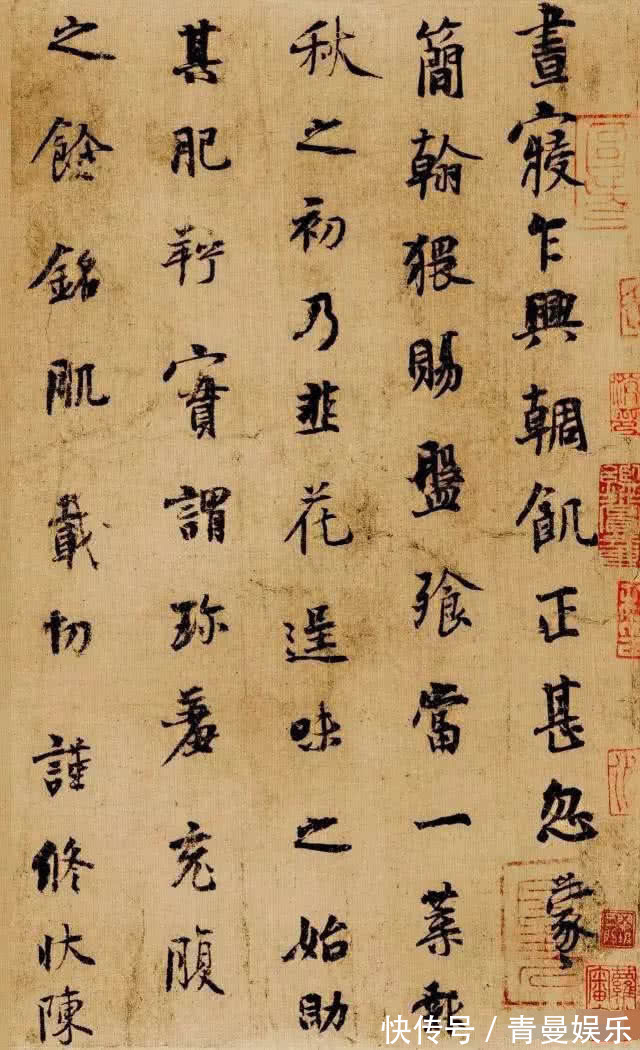 晝寢乍興輖飢正甚忽蒙
簡翰猥賜盤飧當一葉報
秋之初乃韭花逞味之始助
其肥羜實謂珍羞充腹
之餘銘肌載切謹修狀陳
快传号 / 青曼娱乐